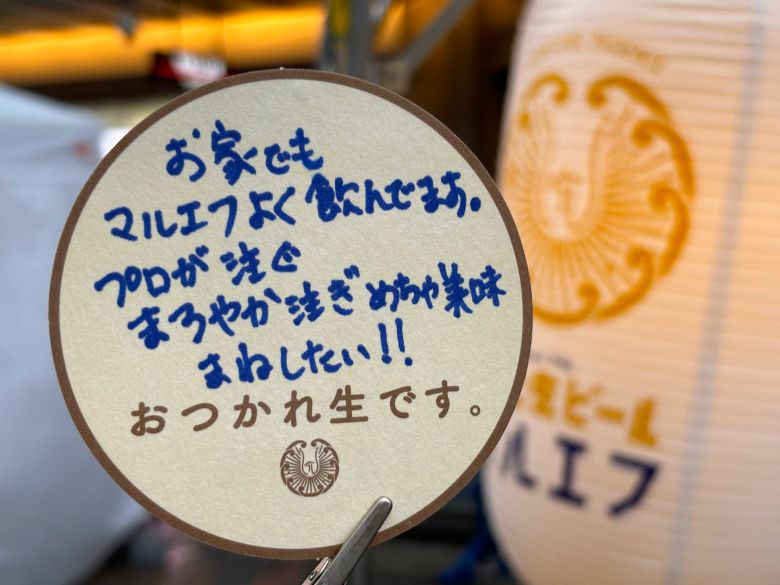 お家でも
マルエフよく飲んでます。
プロが注ぐ
まろやか注ぎめちゃ美味
まねしたい!!
おつかれ生です。
生ビール
ルエフ